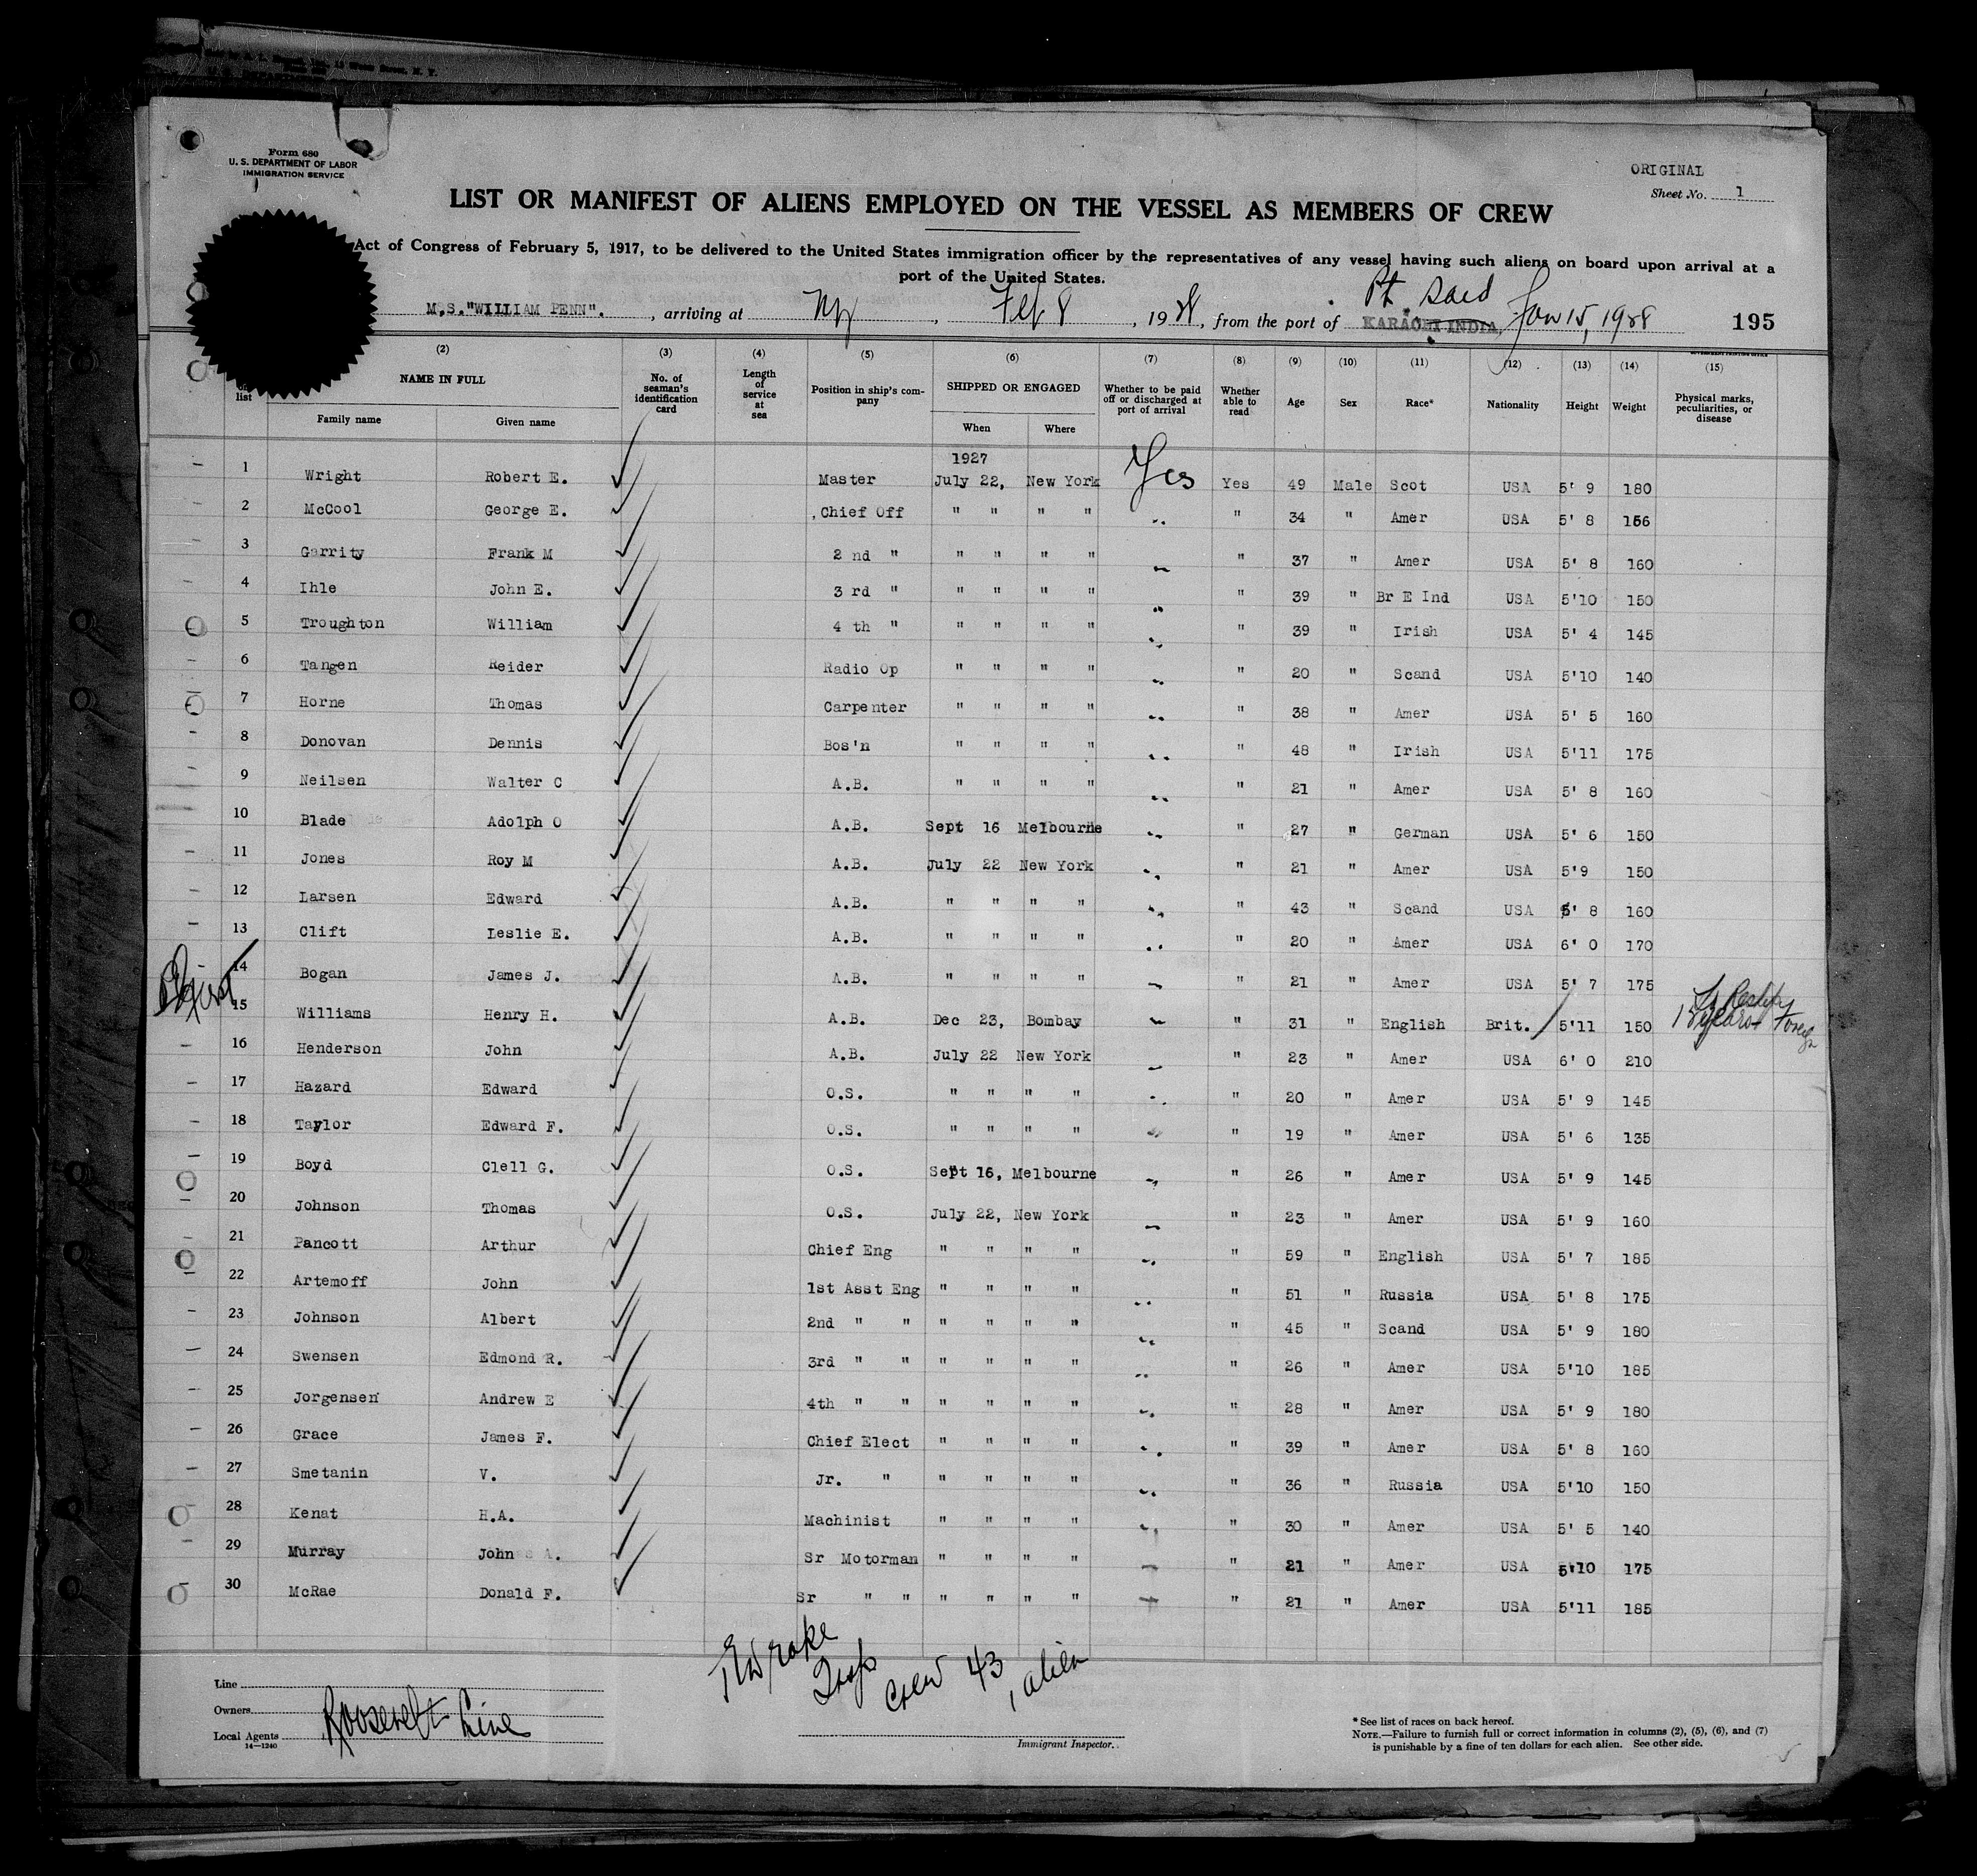 Form 680
U. S. DEPARTMENT OF LABOR
IMMIGRATION SERVICE
ORIGINAL
Sheet No. 1
LIST OR MANIFEST OF ALIENS EMPLOYED ON THE VESSEL AS MEMBERS OF CREW
Act of Congress of February 5, 1917, to be delivered to the United States immigration officer by the representatives of any vessel having such aliens on board upon arrival at a
port of the United States.
Pt Said
M.S. "WILLIAM PENN". , arriving at NY , Feb 8 , 1928, from the port of KARACHI INDIA, Jan 15, 1928 195
list (2) NAME IN FULL Family name Given name (3) No. of seaman's identification card (4) Length of service at sea (5) Position in ship's company (6) SHIPPED OR ENGAGED When Where (7) Whether to be paid off or discharged at port of arrival (8) Whether able to read (9) Age (10) Sex (11) Race* (12) Nationality (13) Height (14) Weight (15) Physical marks, peculiarities, or disease
1927
1 Wright Robert E. Master July 22, New York Yes Yes 49 Male Scot USA 5' 9 180
2 McCool George E. Chief Off " " " " " " 34 " Amer USA 5' 8 156
3 Garrity Frank M 2 nd " " " " " " " 37 " Amer USA 5' 8 160
4 Ihle John E. 3 rd " " " " " " " 39 " Br E Ind USA 5'10 150
5 Troughton William 4 th " " " " " " " 39 " Irish USA 5' 4 145
6 Tangen Reider Radio Op " " " " " " 20 " Scand USA 5'10 140
7 Horne Thomas Carpenter " " " " " " 38 " Amer USA 5' 5 160
8 Donovan Dennis Bos'n " " " " " " 48 " Irish USA 5'11 175
9 Neilsen Walter C A.B. " " " " " " 21 " Amer USA 5' 8 160
10 Blade Adolph O A.B. Sept 16 Melbourne " " 27 " German USA 5' 6 150
11 Jones Roy M A.B. July 22 New York " " 21 " Amer USA 5'9 150
12 Larsen Edward A.B. " " " " " " 43 " Scand USA 5' 8 160
13 Clift Leslie E. A.B. " " " " " " 20 " Amer USA 6' 0 170
14 Bogan James J. A.B. " " " " " " 21 " Amer USA 5' 7 175
15 Williams Henry H. A.B. Dec 23, Bombay " " 31 " English Brit. 5'11 150
16 Henderson John A.B. July 22 New York " " 23 " Amer USA 6' 0 210
17 Hazard Edward O.S. " " " " " " 20 " Amer USA 5' 9 145
18 Taylor Edward F. O.S. " " " " " " 19 " Amer USA 5' 6 135
19 Boyd Clell G. O.S. Sept 16, Melbourne " " 26 " Amer USA 5' 9 145
20 Johnson Thomas O.S. July 22, New York " " 23 " Amer USA 5' 9 160
21 Pancott Arthur Chief Eng " " " " " " 59 " English USA 5' 7 185
22 Artemoff John 1st Asst Eng " " " " " " 51 " Russia USA 5' 8 175
23 Johnson Albert 2nd " " " " " " " " 45 " Scand USA 5' 9 180
24 Swensen Edmond R. 3rd " " " " " " " " 26 " Amer USA 5'10 185
25 Jorgensen Andrew E 4th " " " " " " " " 28 " Amer USA 5' 9 180
26 Grace James F. Chief Elect " " " " " " 39 " Amer USA 5' 8 160
27 Smetanin V. Jr. " " " " " " " 36 " Russia USA 5'10 150
28 Kenat H.A. Machinist " " " " " " 30 " Amer USA 5' 5 140
29 Murray John Sr Motorman " " " " " " 21 " Amer USA 5'10 175
30 McRae Donald F. Sr " " " " " " " " 21 " Amer USA 5'11 185
Crew 43
1 alien
Line
Owners
Roosevelt Line
Local Agents
14—1240
Immigrant Inspector.
* See list of races on back hereof.
NOTE.—Failure to furnish full or correct information in columns (2), (5), (6), and (7)
is punishable by a fine of ten dollars for each alien. See other side.